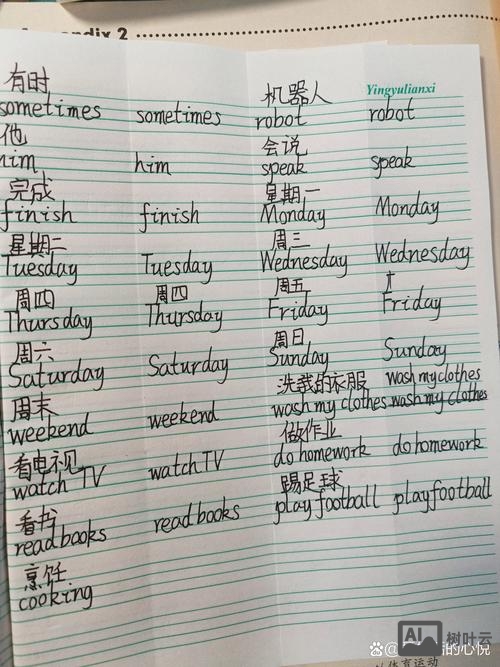 Appendix 2
Yingyulianxi
有时 机器人
sometimes sometimes robot robot
他 会说
him him speak speak
完成 星期一
finish finish Monday Monday
星期二 周三
Tuesday Tuesday Wednesday Wednesday
周四 周四 周五
Thursday Thursday Friday Friday
周六 周日
Saturday Saturday Sunday Sunday
周末 洗我的衣服 wash my clothes
weekend weekend wash my clothes wash my clothes
看电视 做作业
watch TV watch TV do homework do homework
看书 踢足球
read books read books play football play football
烹饪
cooking
AI 树叶云
的心悦
体育运动